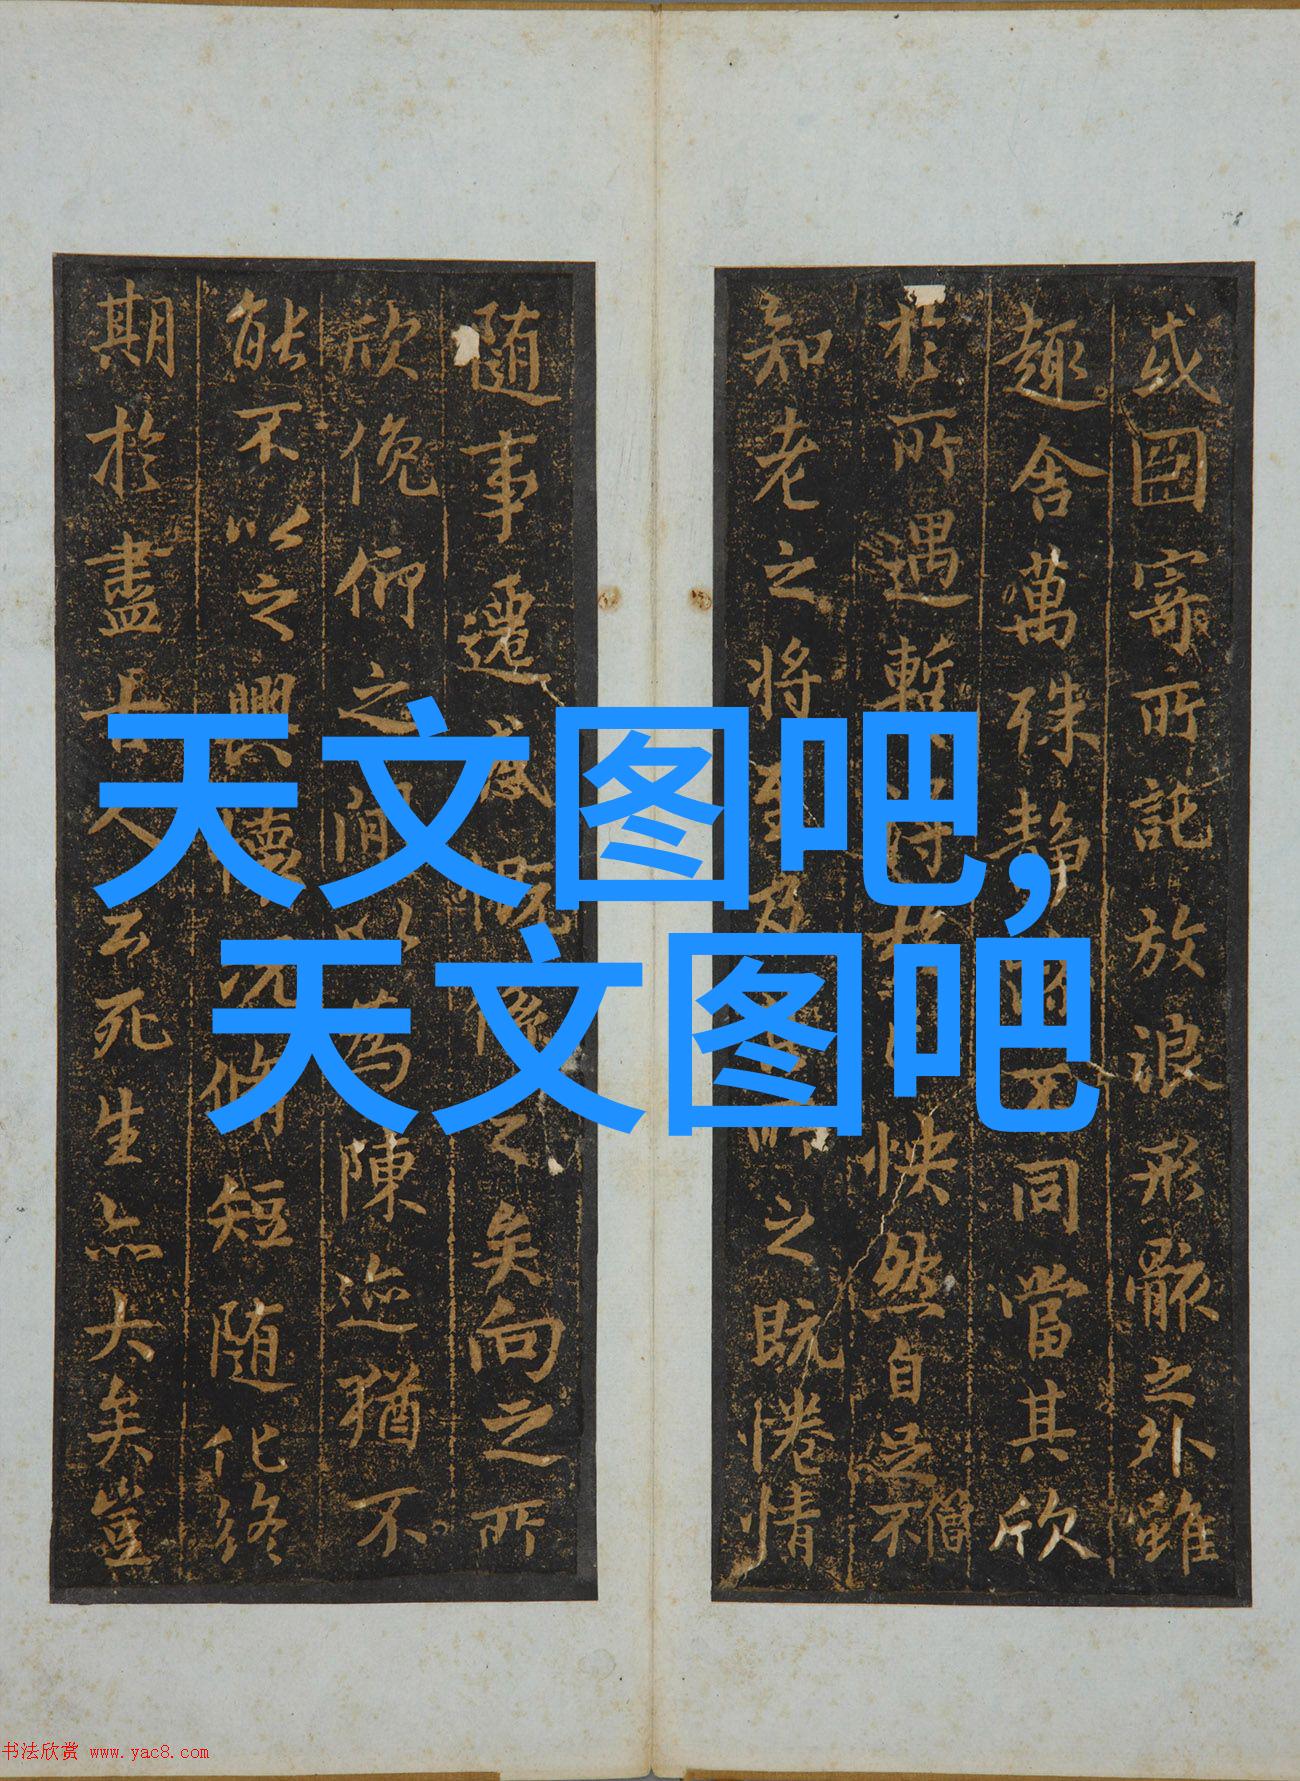 或因寄所託放浪形骸之外雖
趣舍萬殊静不同當其欣
於所遇暫得快然自足不
僧
知老之將至及之既惓情
随事遷感係之矣向之所
欣俛仰之閒以為陳迹猶不
能不以之興懷況脩短随化終
期於盡古人云死生亦大矣豈
天文图吧,
天文图吧
书法欣赏 www.yac8.com